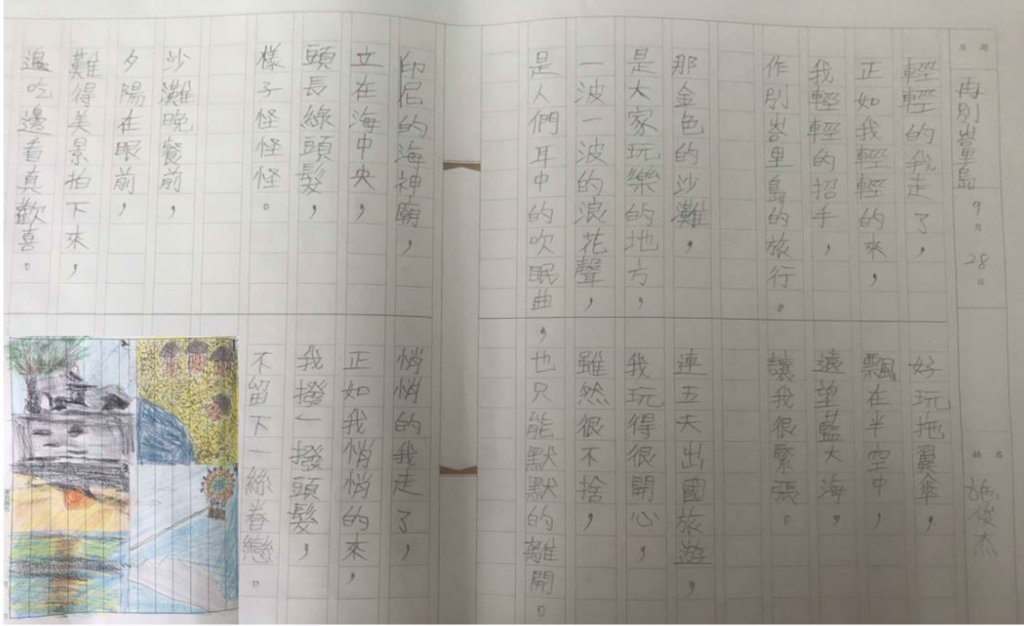 日期
再別峇里島
9月28日
姓名
施俊杰
輕輕的我走了，
正如我輕輕的來，
我輕輕的招手，
作別峇里島的旅行。
那金色的沙灘，
是大家玩樂的地方，
一波一波的浪花聲，
是人們耳中的吹眠曲，
印尼的海神廟，
立在海中央，
頭長綠頭髮，
樣子怪怪怪。
沙灘晚餐前，
夕陽在眼前，
難得美景拍下來，
邊吃邊看真歡喜。
好玩拖翼傘，
飄在半空中，
遠望藍大海，
讓我很緊張。
連五天出國旅遊，
我玩得很開心，
雖然很不捨，
也只能默默的離開。
悄悄的我走了，
正如我悄悄的來，
我撥一撥頭髮，
不留下一絲眷戀。